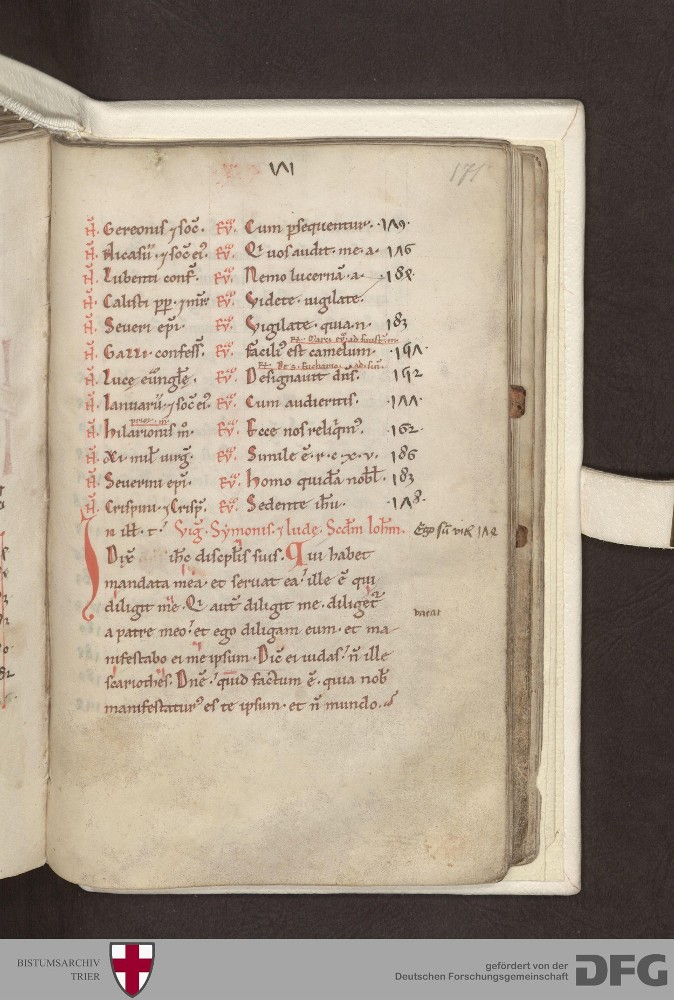 VVI 171
N̄. Gereonis ⁊ soc̄. Ev̄. Cum ꝑsequentur. 179.
N̄. Nicasii. ⁊ soc̄ ei⁹. Ev̄. Qi uos audit. me. a. 176
N̄. Lubenti conf̄. Ev̄. Nemo lucernā. a. 188.
N̄. Calisti pp̄. ⁊ mr̄. Ev̄. Videte. uigilate.
N̄. Seueri ep̄i. Ev̄. Vigilate. quia. n. 183
N̄. Galli. confess̄. Ev̄. facili⁹ est camelum. 191.
N̄. Lucę eūngl̄ę. Ev̄. Designauit dn̄s. 192
N̄. Ianuarii. ⁊ soc̄ ei⁹. Ev̄. Cum audieritis. 177.
N̄. hilarionis m̄. Ev̄. Ecce nos reliq̄m⁹. 162.
N̄. xi. mil̄ uirḡ. Ev̄. Simile ē. r. c. x. v. 186
N̄. Seuerini ep̄i. Ev̄. homo quidā nobl̄. 183
N̄. Crispini. ⁊ Crisp̄. Ev̄. Sedente ih̄u. 178.
In ill̄. t̄. Viḡ. Symonis. ⁊ Iudę. Scd̄m Ioh̄m. Ego sū vit̄
Dix̄ ih̄c discipl̄is suis. Qui habet
mandata mea. et seruat ea. ille ē qui
diligit me. Qi aut̄ diligit me. diliget᷑
a patre meo. et ego diligam eum. et ma vacat
nifestabo ei me ipsum. Dic̄ ei iudas. n̄ ille
scariothes. Dn̄e. quid factum ē. quia nob̄
manifestatur⁹ es te ipsum. et n̄ mundo.
BISTUMSARCHIV
TRIER
gefördert von der
Deutschen Forschungsgemeinschaft
DFG